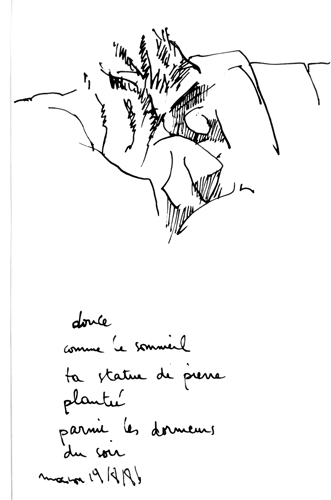 douce
comme le sommeil
ta statue de pierre
plantée
parmi les dormeurs
du soir